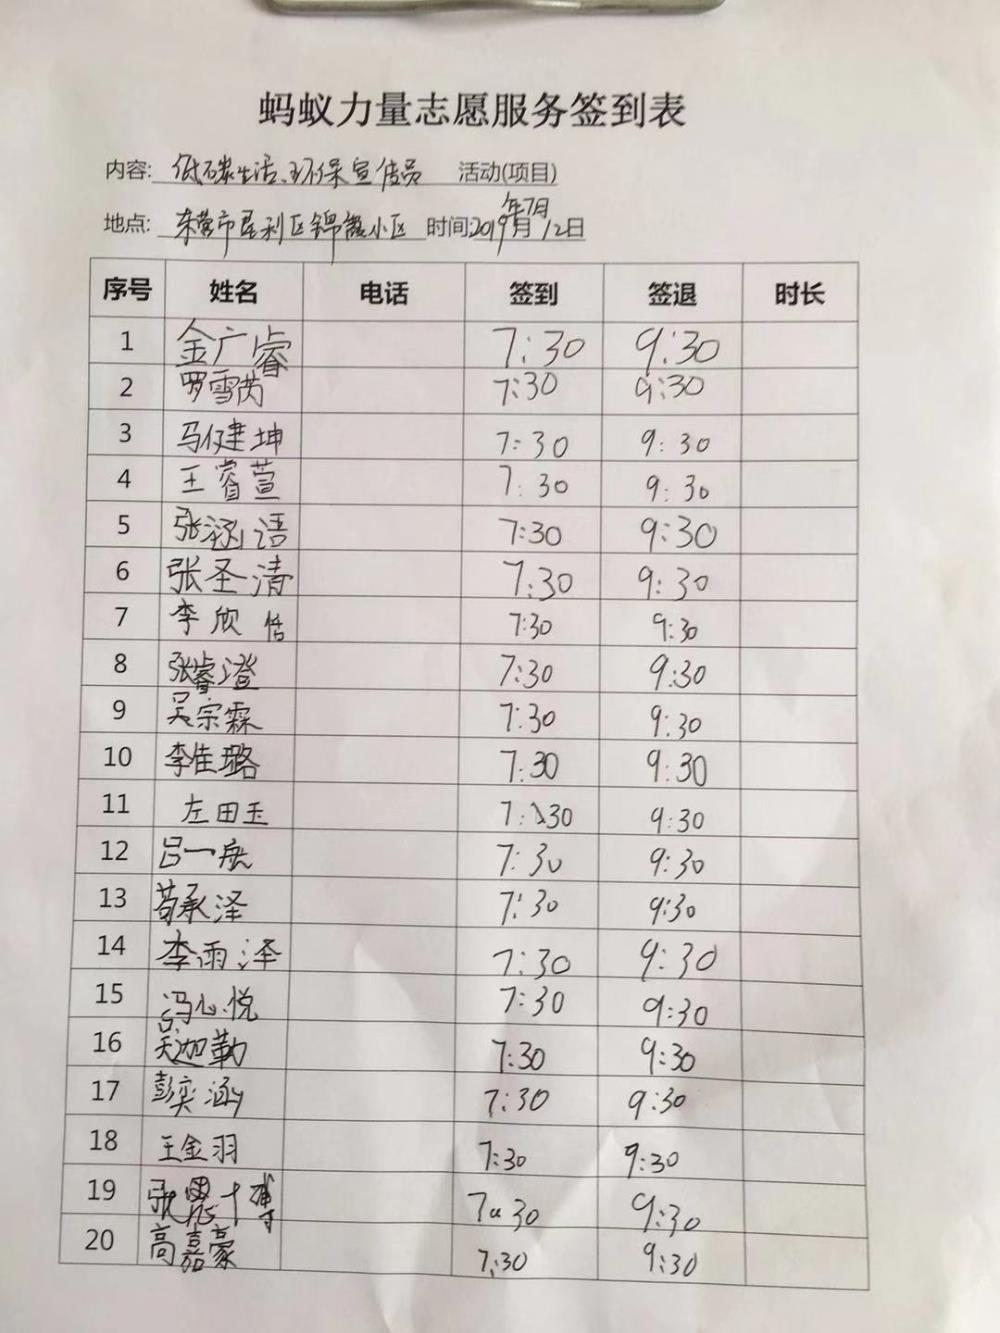 蚂蚁力量志愿服务签到表
内容: 低碳生活、环保宣传员 活动(项目)
地点: 东营市垦利区锦霞小区 时间:2019年7月12日
序号 姓名 电话 签到 签退 时长
1 金广睿 7:30 9:30
2 罗雪芮 7:30 9:30
3 马健坤 7:30 9:30
4 王睿萱 7:30 9:30
5 张涵语 7:30 9:30
6 张圣清 7:30 9:30
7 李欣恬 7:30 9:30
8 张睿澄 7:30 9:30
9 吴宗霖 7:30 9:30
10 李佳璐 7:30 9:30
11 左田玉 7:30 9:30
12 吕一 7:30 9:30
13 苟承泽 7:30 9:30
14 李雨泽 7:30 9:30
15 冯心悦 7:30 9:30
16 吴迦勒 7:30 9:30
17 彭奕涵 7:30 9:30
18 王金羽 7:30 9:30
19 张恩博 7:30 9:30
20 高嘉豪 7:30 9:30